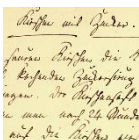 Kirschen mit Zucker.
sauren Kirschen die K
kochenden Zuckersirup
ngen. Der Kirschensaft
man nach 24 Stunde
auf die Kirschen